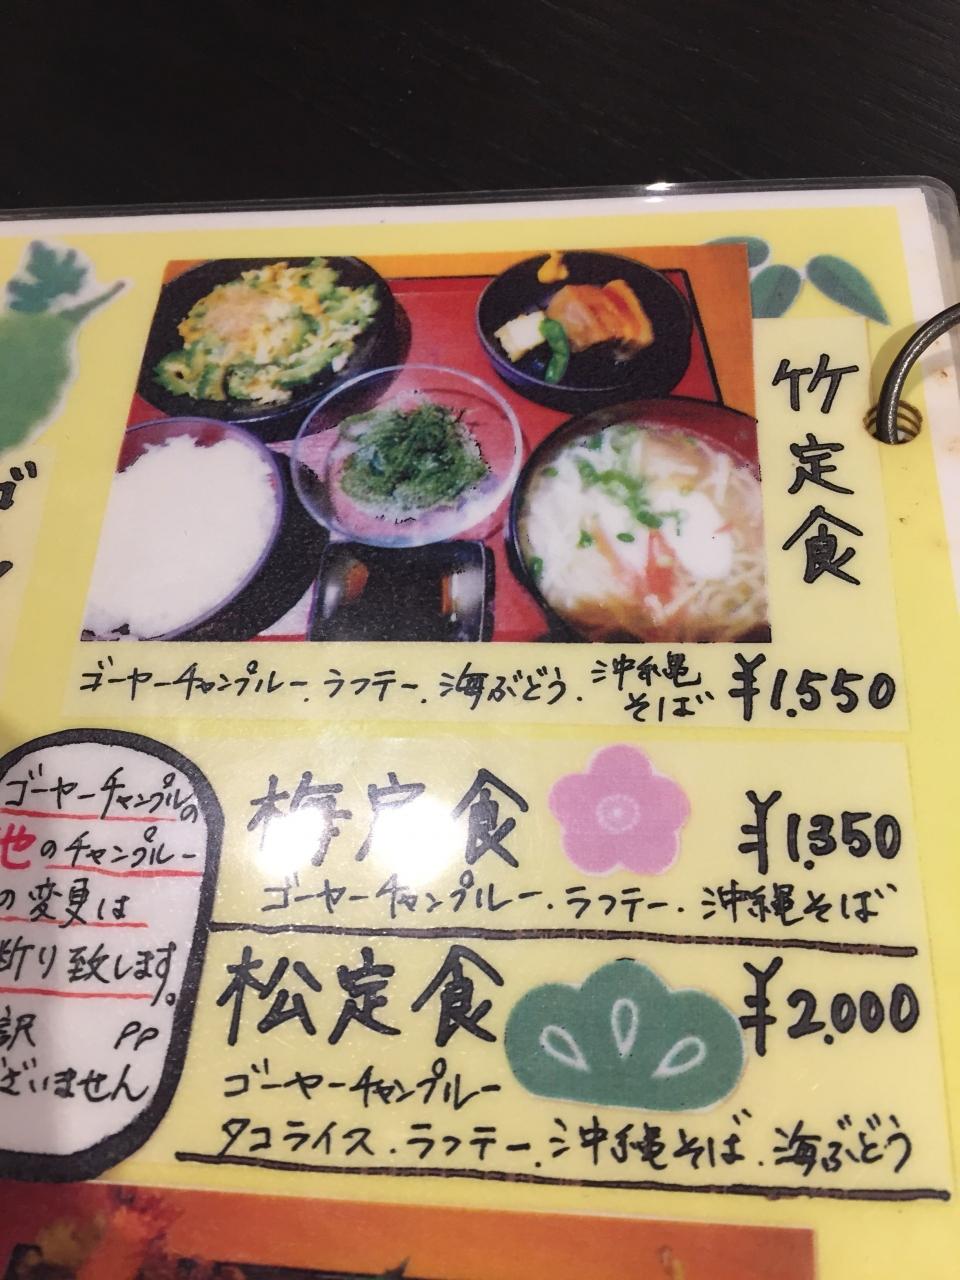 竹定食
ゴーヤーチャンプルー.ラフテー.海ぶどう.沖縄
そば
¥1.550
梅定食
¥1.350
ゴーヤーチャンプルー.ラフテー.沖縄そば
松定食
¥2.000
ゴーヤーチャンプルー
タコライス.ラフテー.沖縄そば.海ぶどう
ゴーヤーチャンプルの
他のチャンプルー
の変更は
断り致します。
訳
ざいません